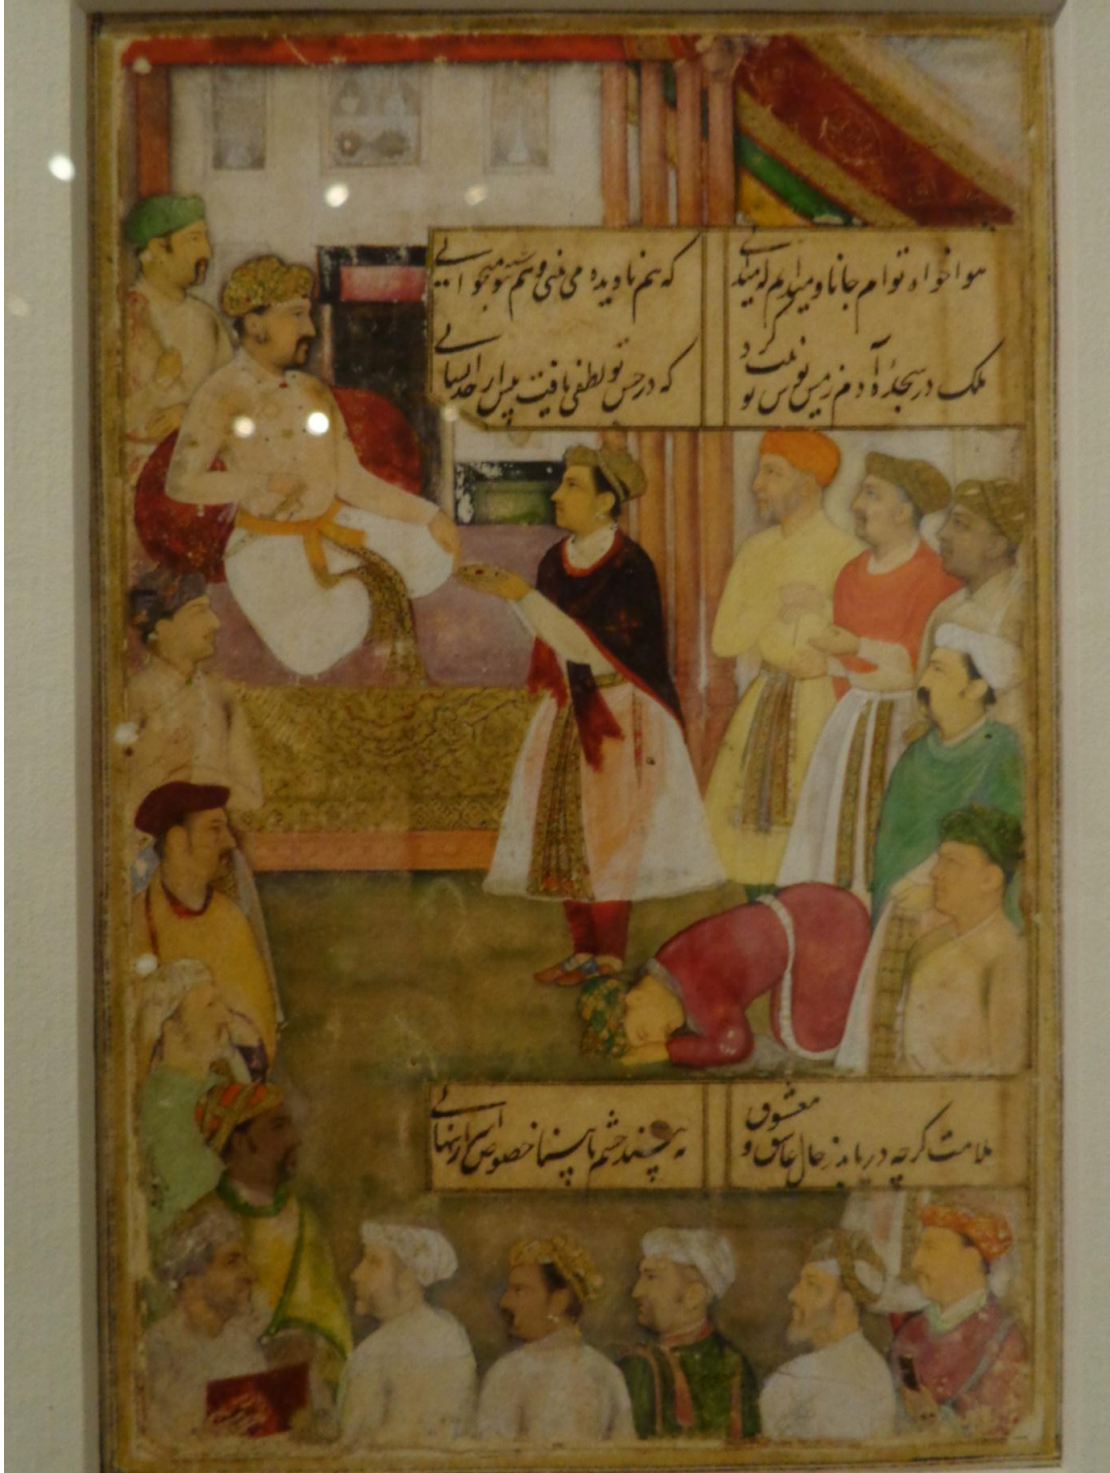 هواخواه توام جانا و میدانم که میدانی
که هم نادیده می بینی و هم ننوشته میخوانی
ملک در سجدهٔ آدم زمین بوس تو نیت کرد
که در حسن تو لطفی یافت بیش از حد انسانی
ملامت گر چه دریابد ز حال عاشق و معشوق
نبیند چشم نابینا خصوص اسرار پنهانی